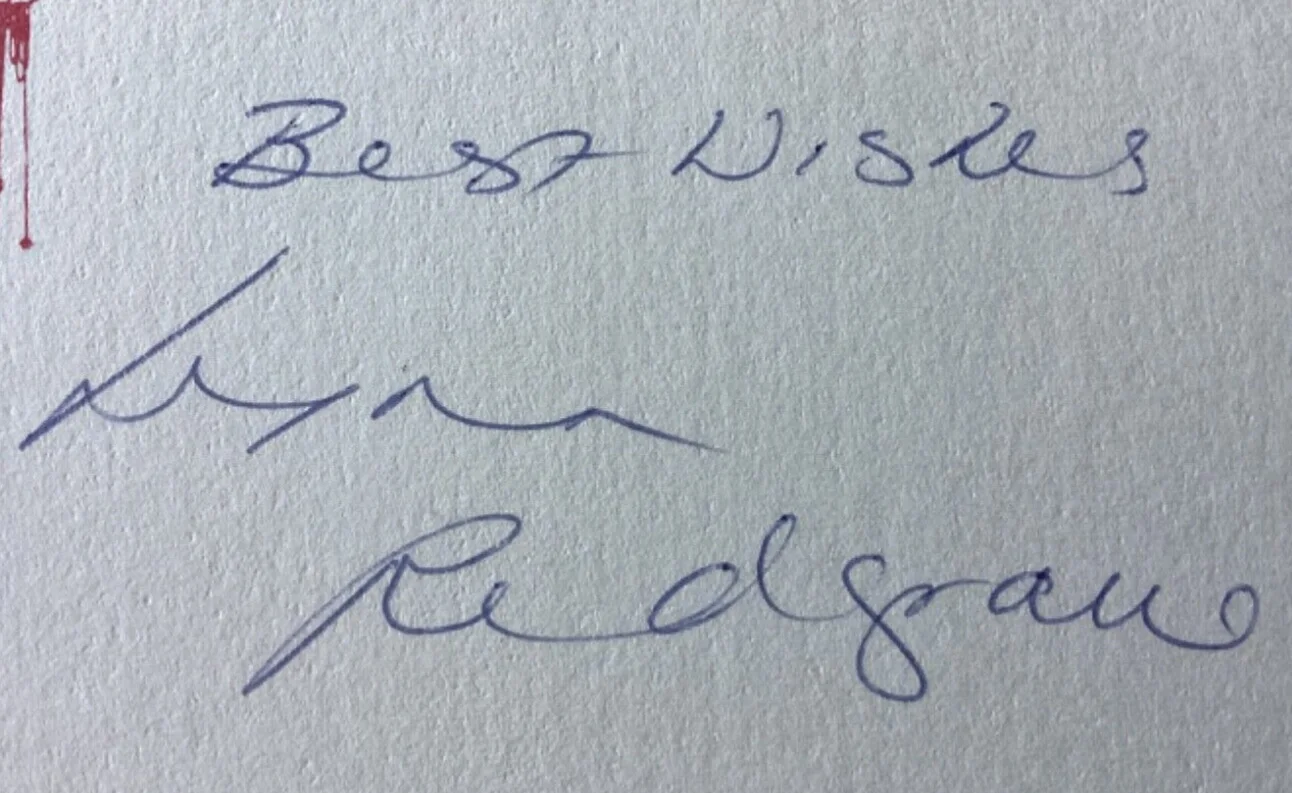 Best Wishes
Lynn
Redgrave